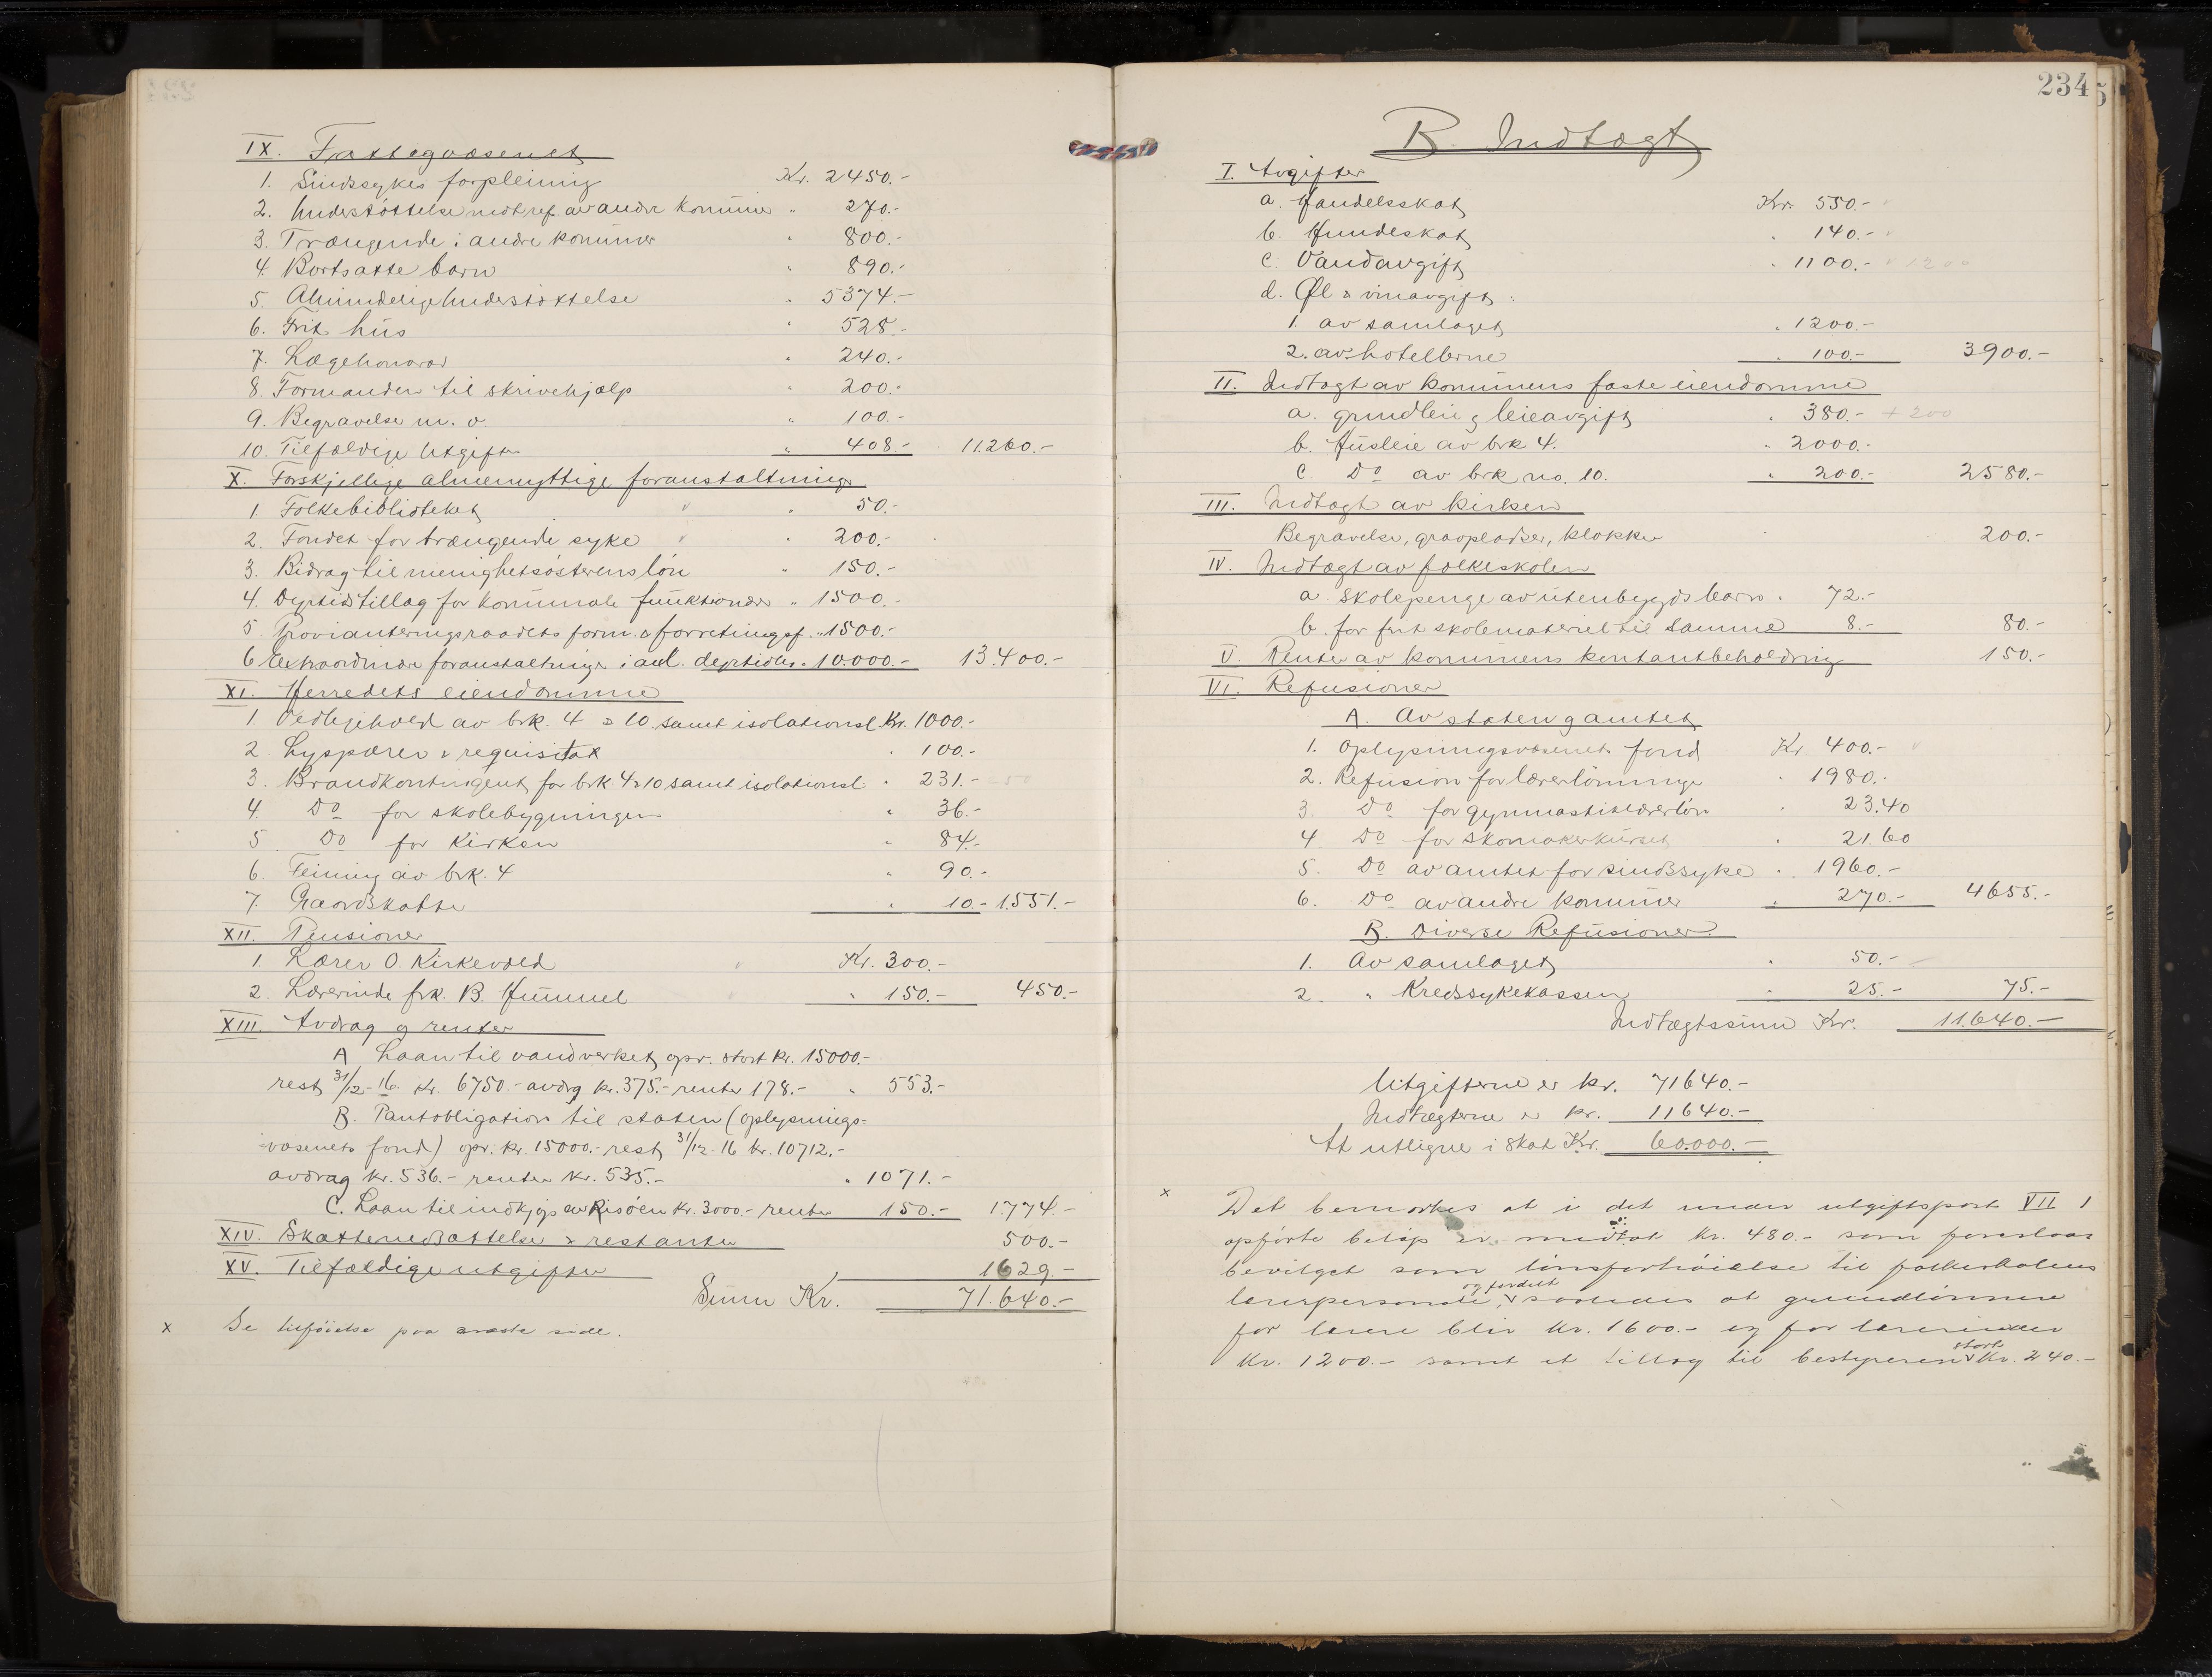 IX. Fattigvæsenet
1. Sindssykes forpleining Kr. 2450.-
2. Understøttelse mot ref. av andre kommuner " 270.-
3. Trængende i andre kommuner " 800.-
4. Bortsatte barn " 890.-
5. Almindelige Understøttelse " 5374.-
6. Frit hus " 528.-
7. Lægehonorar " 240.-
8. Formanden til skrivehjælp 200.-
9. Begravelse m. v. " 100.-
10. Tilfældige Utgifter " 408.- 11.260.-
X. Forskjellige almennyttige foranstaltninger
1. Folkebiblioteket " 50.-
2. Fondet for trængende syke " 200.-
3. Bidrag til menighetsøsterens løn " 150.-
4. Dyrtidstillag for kommunale funktionærer " 1500.-
5. Provianteringsraadets form. & forretningsf. " 1500.-
6 Extraordinære foranstaltninger i anl. dyrtiden " 10.000.- 13.400.-
XI. Herredets eiendomme
1. Vedlikehold av brk. 4 & 10 samt isolationsl. Kr. 1000.-
2. Lyspærer & requisita " 100.-
3. Brandkontingent for brk. 4 & 10 samt isolationsl " 231.- 50
4. Do for skolebygningen " 36.-
5. Do for Kirken " 84.-
6. Feining av brk. 4 " 90.-
7. Gaardskatter " 10.- 1.551.-
XII. Pensioner
1. Lærer O. Kirkevold Kr. 300.-
2. Lærerinde frk. B. Hummel " 150.- 450.-
XIII. Avdrag og renter
A Laan til vandverket opr. stort kr. 15000.-
rest 31/12-16. Kr. 6750.- avdrg kr. 375.- renter 178.- " 553.-
B. Pantobligation til staten (oplysnings-
væsenets fond) opr. kr. 15000.- rest 31/12-16 kr. 10712.-
avdrag kr. 536.- renter kr. 535.- " 1071.-
C. Laan til indkjøp av Risøen kr. 3000.- renter 150.- 1.774.-
XIV. Skattenedsættelse & restanser 500.-
XV. Tilfældige utgifter 1629.-
Summ Kr. 71.640.-
x Se tilføielse paa næste side.
234
5
B. Indtægt
I. Avgifter
a. Handelsskat Kr. 550.-
b. Hundeskat " 140.-
c. Vandavgift " 1100.- 1200
d. Øl & vinavgift :
1. av samlaget " 1200.-
2. av hotellerne " 100.- 3900.-
II. Indtægt av kommunens faste eiendomme
a. grundleie og leieavgift " 380.- + 200
b. Husleie av brk 4. " 2000.-
c. Do av brk no. 10. " 200.- 2580.-
III. Indtægt av kirken
Begravelse, gravpladser, klokker 200.-
IV. Indtægt av folkeskolen
a. skolepenge av utenbygds barn " 72.-
b. for frit skolemateriel til samme 8.- 80.-
V. Renter av kommunens kontantbeholdning 150.-
VI. Refusioner
A. Av staten og amtet
1. Oplysningsvæsenets fond Kr. 400.-
2. Refusion for lærerlønninger " 1980.-
3. Do for gymnastiklærerløn " 23.40
4 Do for skomakerkurset " 21.60
5. Do av amtet for sindssyke " 1960.-
6. Do av andre kommuner " 270.- 4655.-
B. Diverse Refusioner
1. Av samlaget " 50.-
2. " Kredssykekassen " 25.- 75.-
Indtægtssum Kr. 11.640.-
Utgifterne er kr. 71640.-
Indtægterne er kr. 11640.-
At utligne i skat Kr. 60.000.-
x Det bemerkes at i det under utgiftspost VII 1
opførte beløp er medtat kr. 480.- som foreslaas
bevilget som lønsforhøielse til folkeskolens
lærerpersonale, og fordelt saaledes at grundlønnen
for lærere blir kr. 1600.- og for lærerinder
kr. 1200.- samt et tillæg til bestyreren stort kr. 240.-